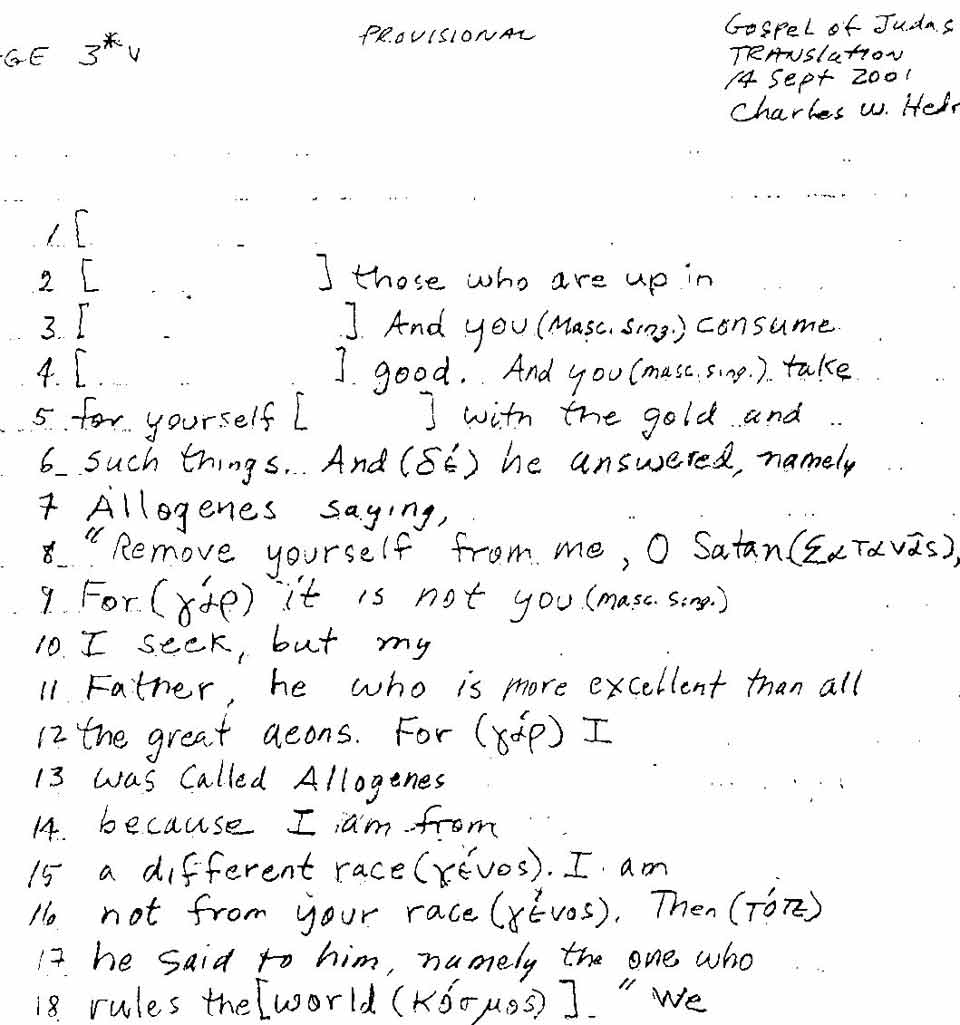 PROVISIONAL
Gospel of Judas
GE 3*v
TRANSlation
14 Sept 2001
Charles W. Hedr
1 [
2 [ ] those who are up in
3 [ ] And you (Masc. sing.) consume
4. [ ] good. And you (masc. sing.) take
5 for yourself [ ] with the gold and
6 such things. And (δέ) he answered, namely
7 Allogenes saying,
8 "Remove yourself from me, O Satan (Σατανᾶς),
9 For (γάρ) it is not you (masc. sing.)
10. I seek, but my
11 Father, he who is more excellent than all
12 the great aeons. For (γάρ) I
13 was called Allogenes
14. because I am from
15 a different race (γένος). I am
16 not from your race (γένος). Then (τότε)
17 he said to him, namely the one who
18 rules the [world (κόσμος)] " We